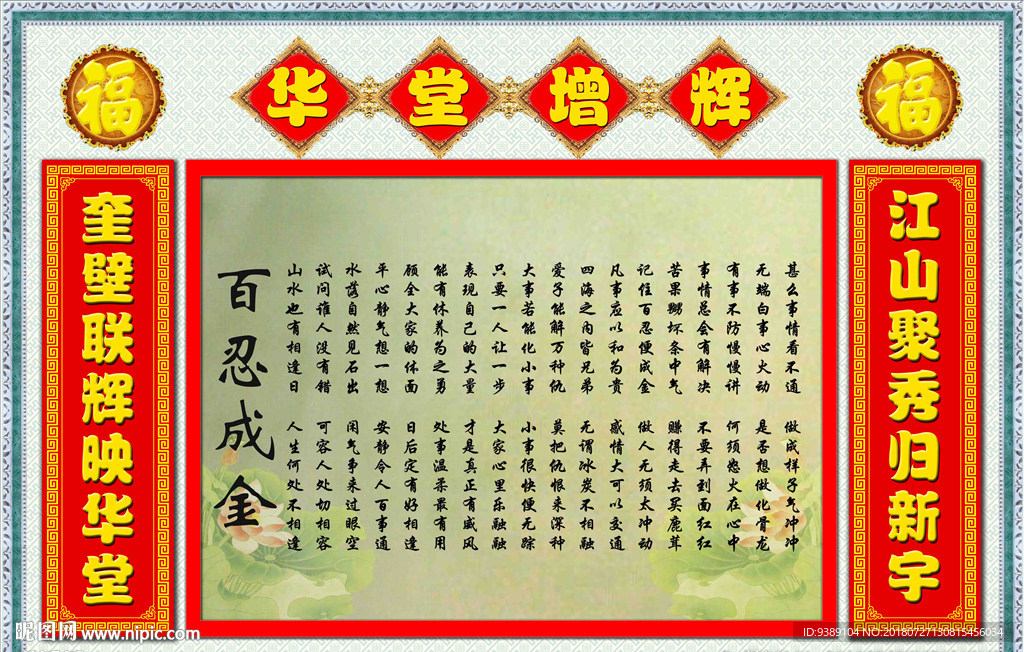 福
华堂增辉
福
江山聚秀归新宇
甚么事情看不通 做成样子气冲冲
无端白事心火动 是否想做化骨龙
有事不防慢慢讲 何须怨火在心中
事情总会有解决 不要弄到面红红
苦果嬲坏条中气 赚得走去买鹿茸
记住百忍便成金 做人无须太冲动
凡事应以和为贵 感情大可以交通
四海之内皆兄弟 无谓冰炭不相融
爱子能解万种仇 莫把仇恨来深种
大事若能化小事 小事很快便无踪
只要一人让一步 大家心里乐融融
表现自己的大量 才是真正有威风
能有休养为之勇 处事温柔最有用
顾全大家的体面 日后定有好相逢
平心静气想一想 安静令人百事通
水落自然见石出 闲气事来过眼空
试问谁人没有错 可容人处切相容
山水也有相逢日 人生何处不相逢
百忍成金
奎壁联辉映华堂
昵图网 www.nipic.com
ID:9389104 NO:20180727130815456034